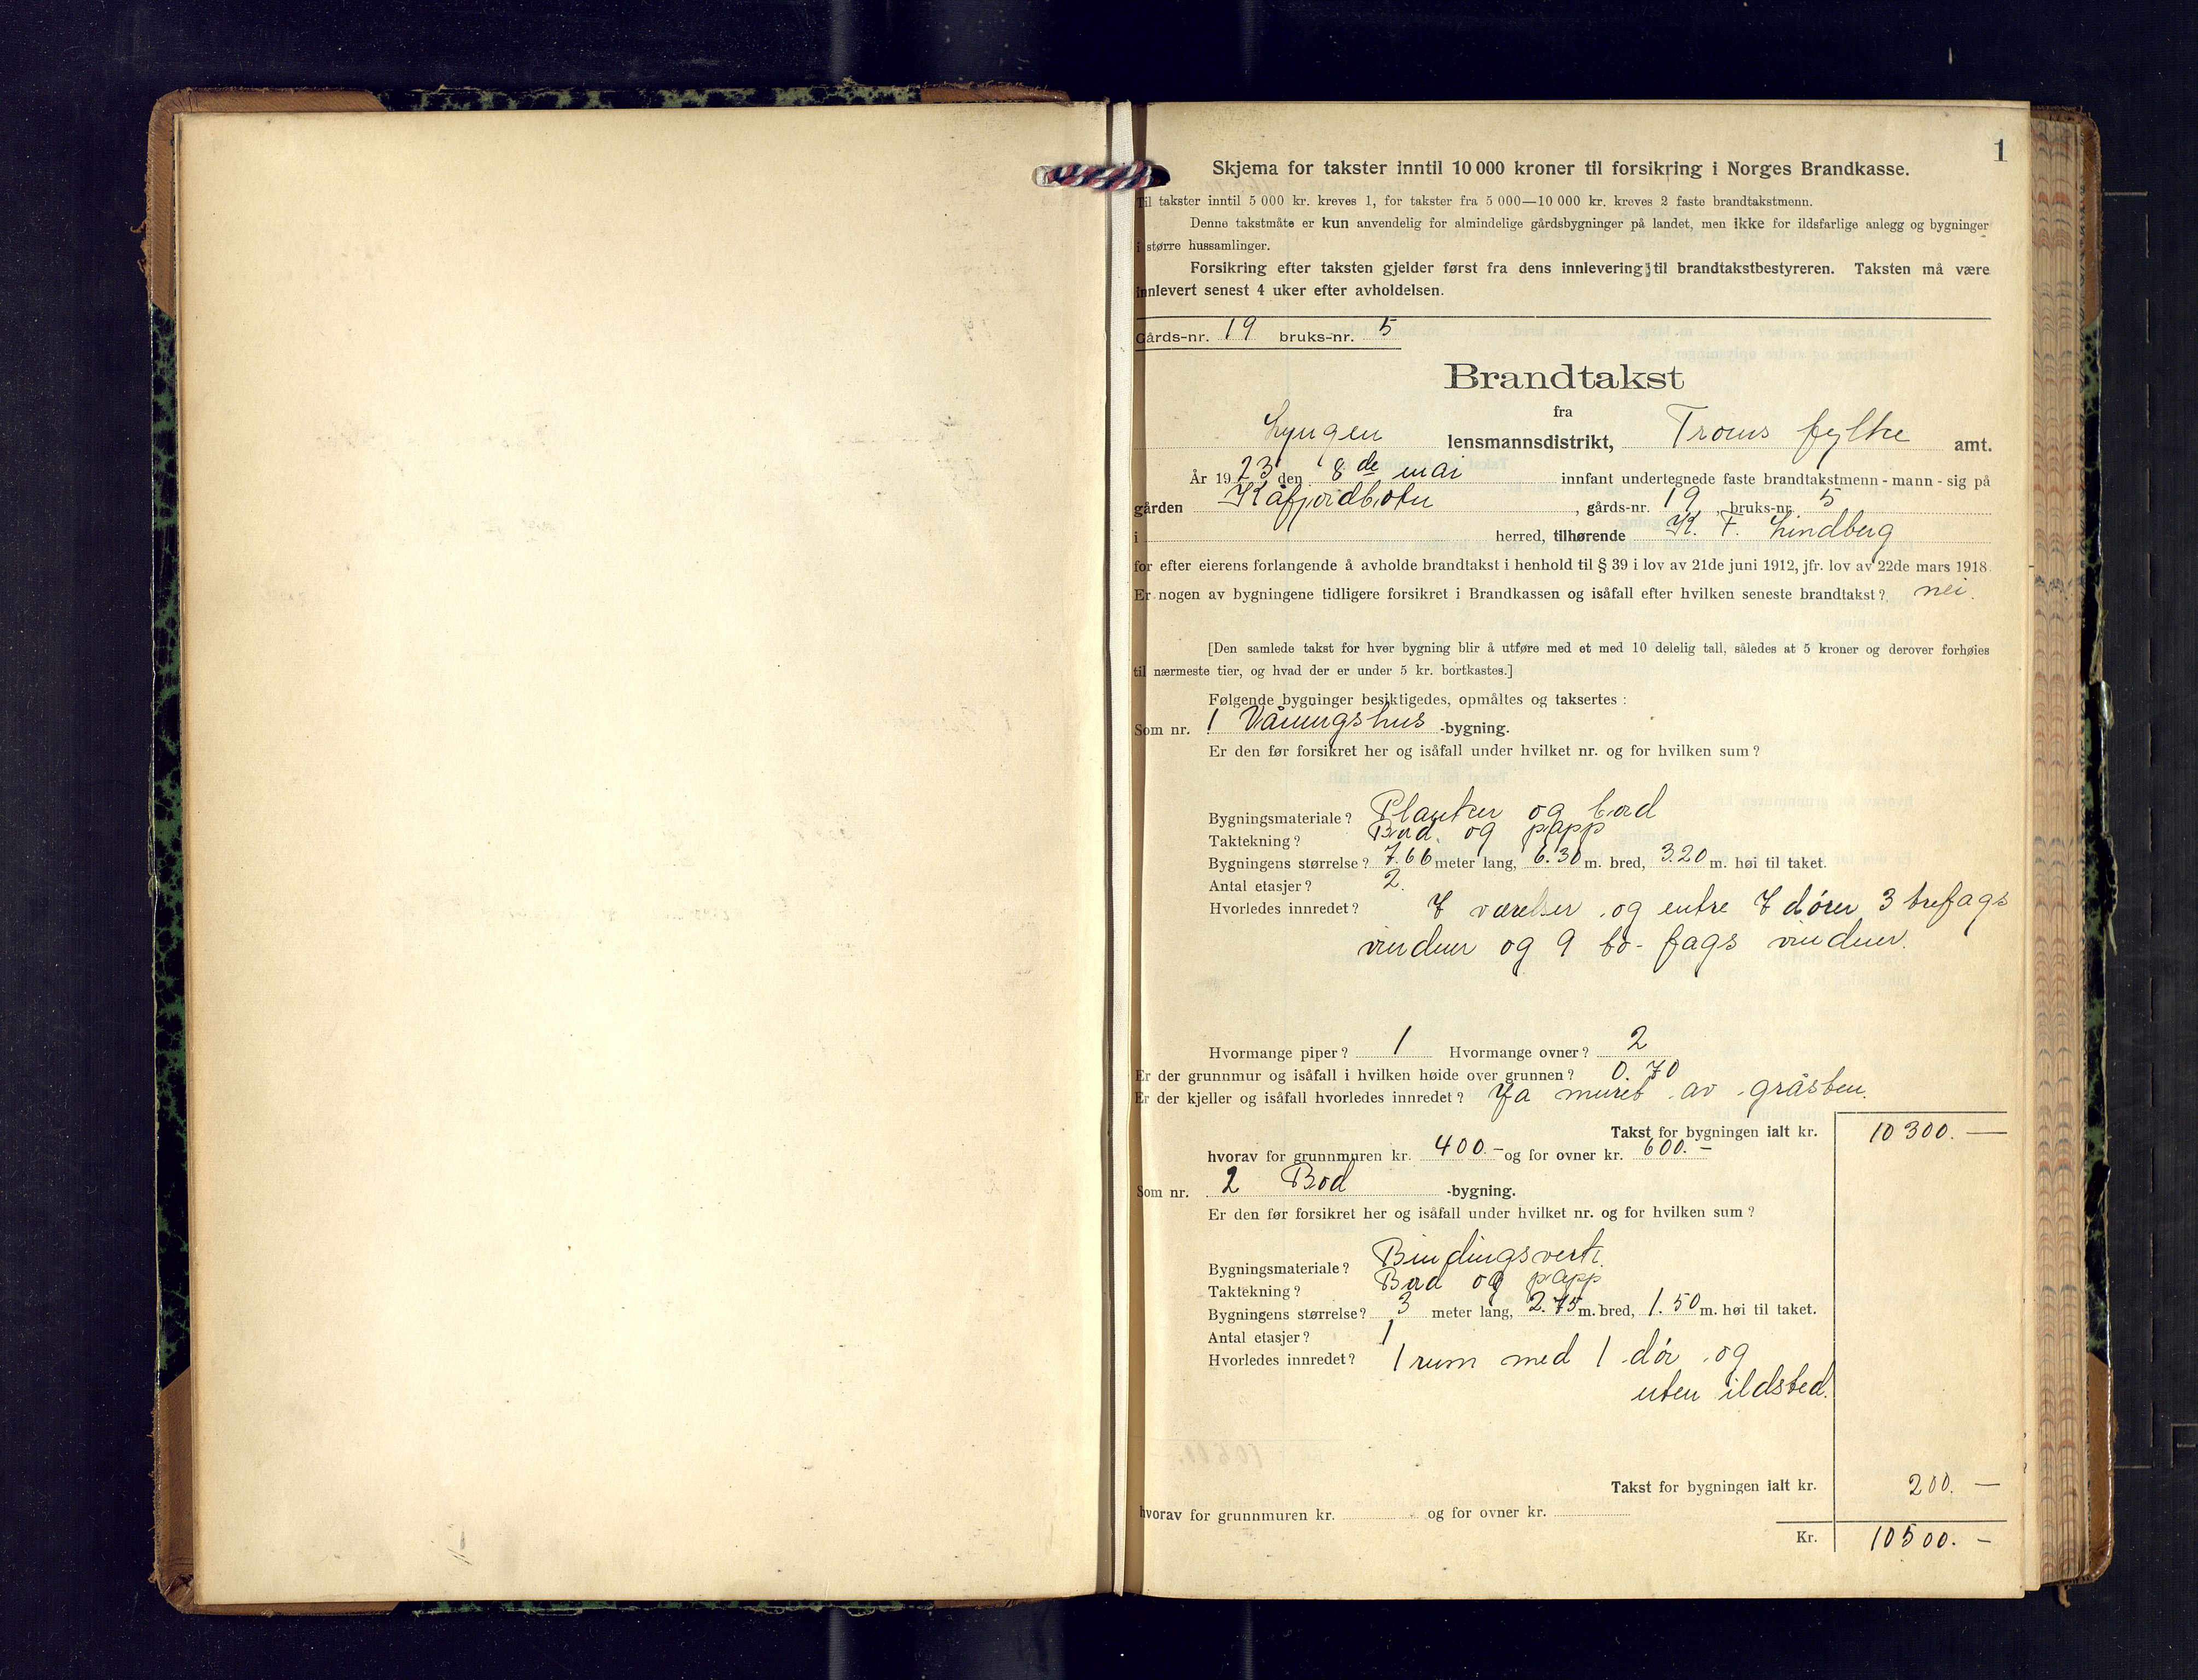 1
Skjema for takster inntil 10 000 kroner til forsikring i Norges Brandkasse.
Til takster inntil 5 000 kr. kreves 1, for takster fra 5 000—10 000 kr. kreves 2 faste brandtakstmenn.
Denne takstmåte er kun anvendelig for almindelige gårdsbygninger på landet, men ikke for ildsfarlige anlegg og bygninger
i større hussamlinger.
Forsikring efter taksten gjelder først fra dens innlevering til brandtakstbestyreren. Taksten må være
innlevert senest 4 uker efter avholdelsen.
Gårds-nr. 19 bruks-nr. 5
Brandtakst
fra
Lyngen lensmannsdistrikt, Troms fylke amt.
År 1923 den 8de mai innfant undertegnede faste brandtakstmenn - mann - sig på
gården Kåfjordboten, gårds-nr. 19, bruks-nr. 5
i herred, tilhørende K. F. Lindberg
for efter eierens forlangende å avholde brandtakst i henhold til § 39 i lov av 21de juni 1912, jfr. lov av 22de mars 1918.
Er nogen av bygningene tidligere forsikret i Brandkassen og isåfall efter hvilken seneste brandtakst? nei.
[Den samlede takst for hver bygning blir å utføre med et med 10 delelig tall, således at 5 kroner og derover forhøies
til nærmeste tier, og hvad der er under 5 kr. bortkastes.]
Følgende bygninger besiktigedes, opmåltes og taksertes :
Som nr. 1 Våningshus -bygning.
Er den før forsikret her og isåfall under hvilket nr. og for hvilken sum?
Bygningsmateriale? Planker og bord
Taktekning? Bord og papp
Bygningens størrelse? 7.66 meter lang, 6.30 m. bred, 3.20 m. høi til taket.
Antal etasjer? 2.
Hvorledes innredet? 7 værelser og entre 7 dører 3 trefags
vinduer og 9 to-fags vinduer.
Hvormange piper? 1 Hvormange ovner? 2
Er der grunnmur og isåfall i hvilken høide over grunnen? 0.70
Er der kjeller og isåfall hvorledes innredet? Ja muret av gråsten.
Takst for bygningen ialt kr. 10300.—
hvorav for grunnmuren kr. 400.- og for ovner kr. 600.-
Som nr. 2 Bod -bygning.
Er den før forsikret her og isåfall under hvilket nr. og for hvilken sum?
Bygningsmateriale? Bindingsverk.
Taktekning? Bord og papp
Bygningens størrelse? 3 meter lang, 2.75 m. bred, 1.50 m. høi til taket.
Antal etasjer? 1
Hvorledes innredet? 1 rum med 1 dør og
uten ildsted.
Takst for bygningen ialt kr. 200.—
hvorav for grunnmuren kr. og for ovner kr.
Kr. 10500.-